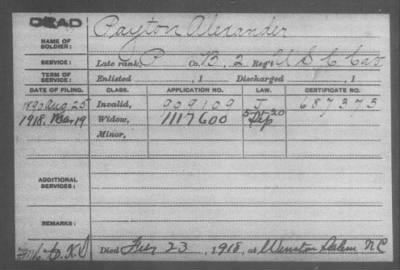 DEAD
NAME OF SOLDIER: Payton Alexander
SERVICE: Late rank, P Co. B, 2 Reg't U S C Cav
TERM OF SERVICE: Enlisted , 1 Discharged , 1
DATE OF FILING. CLASS. APPLICATION NO. LAW. CERTIFICATE NO.
1890 Aug 25 Invalid, 909109 J 687375
1918. Mar 19 Widow, 1117600
Minor,
ADDITIONAL SERVICES:
REMARKS:
Died Feb 23, 1918, at Winston Salem N C